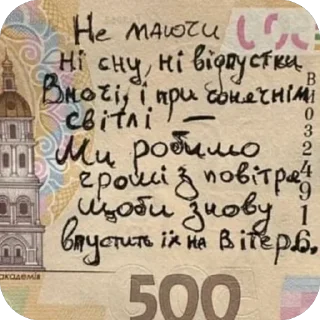 Не маючи
ні сну, ні відпустки
Вночі, і при сонячнім
світлі —
Ми робимо
гроші з повітря
Щоби знову
впустить їх на вітер.
ВИ0324916
академія
500